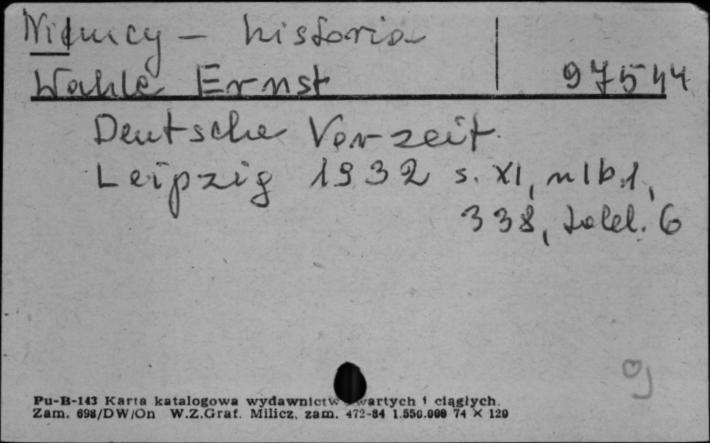 Niemcy - historia
Wahle Ernst 97544
Deutsche Vorzeit.
Leipzig 1932 s. XI, nlb. 1,
338, tabl. 6
Pu-B-143 Karta katalogowa wydawnictw zwartych i ciągłych.
Zam. 698/DW/On W.Z.Graf. Milicz, zam. 472-84 1.550.000 74 × 120